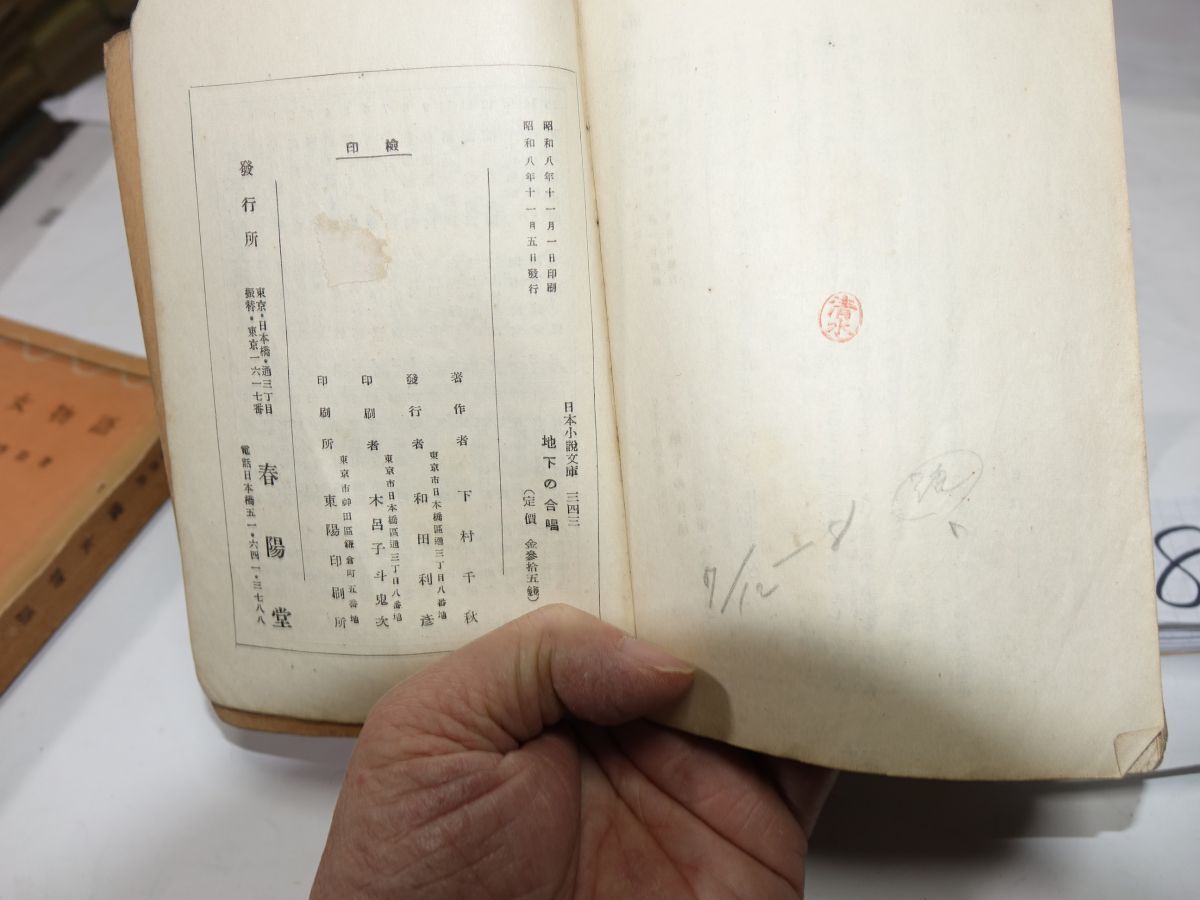 清水
7/12
昭和八年十一月一日印刷
昭和八年十一月五日發行
日本小說文庫 三四三
地下の合唱
(定價 金參拾五錢)
檢印
著作者 下村千秋
東京市日本橋區通三丁目八番地
發行者 和田利彥
東京市日本橋區通三丁目八番地
印刷者 木呂子斗鬼次
東京市神田區鎌倉町五番地
印刷所 東陽印刷所
發行所
東京・日本橋・通三丁目
振替・東京一六一七番
春陽堂
電話日本橋五一・六四一・三七八八
8